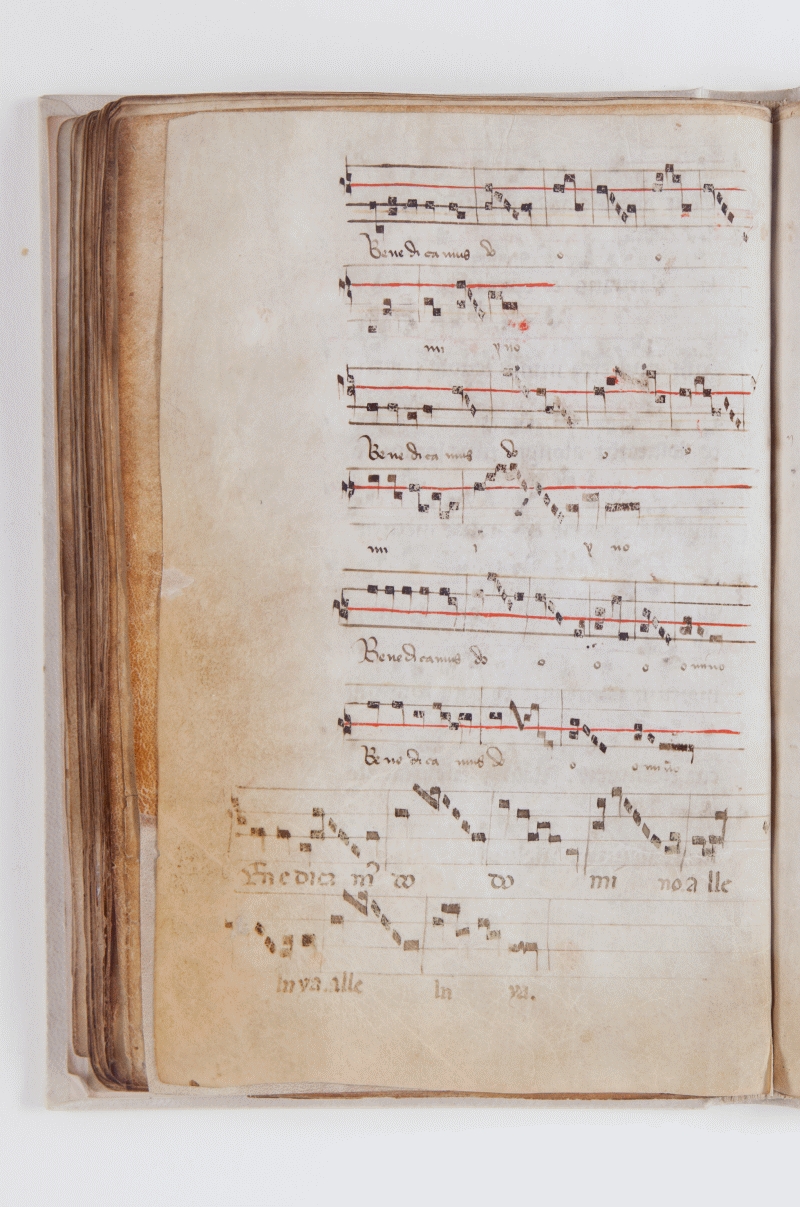 Benedicamus do o o
mi no
Benedica mus do o o
mi i no
Benedicamus do o o o o mino
Benedica mus do o o mino
Benedica m9 do do mi no.a lle
lu ya.alle lu ya.